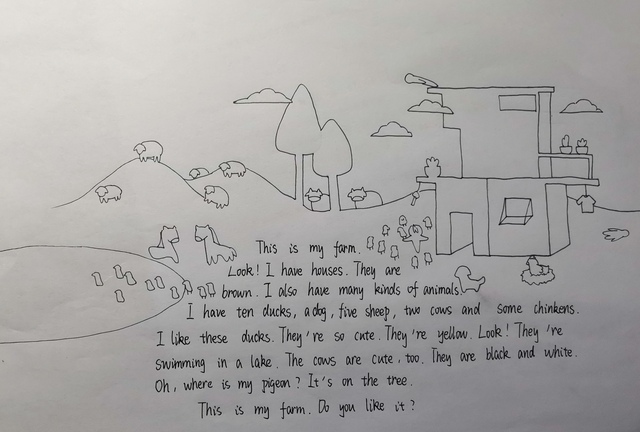 This is my farm.
Look! I have houses. They are
brown. I also have many kinds of animals.
I have ten ducks, a dog, five sheep, two cows and some chinkens.
I like these ducks. They're so cute. They're yellow. Look! They're
swimming in a lake. The cows are cute, too. They are black and white.
Oh, where is my pigeon? It's on the tree.
This is my farm. Do you like it?